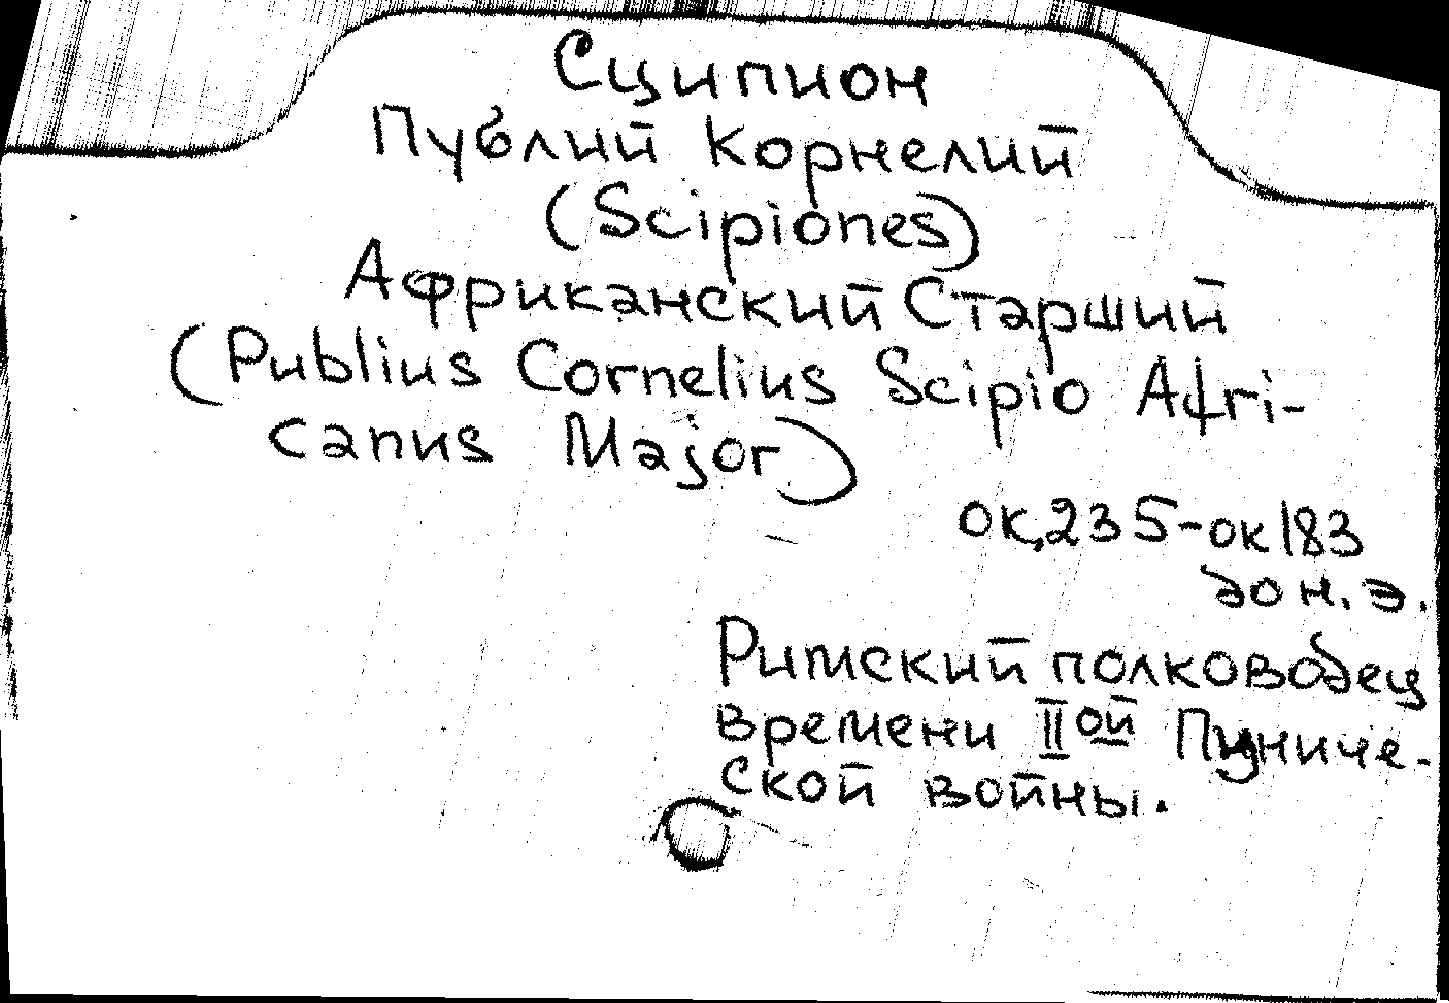 Сципион
Публий Корнелий
(Scipiones)
Африканский Старший
(Publius Cornelius Scipio Afri-
canus Major)
ок, 235-ок 183
до н. э.
Римский полководец
времени II ой Пуниче-
ской войны.